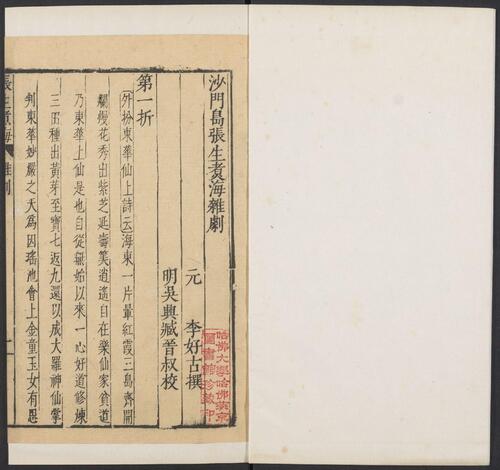 沙門島張生煮海雜劇
元　李好古撰
明吳興臧晉叔校
第一折
〔外扮東華仙上詩云〕海東一片暈紅霞三島齊開
爛熳花秀出紫芝延壽筭逍遙自在樂仙家貧道
乃東華上仙是也自從無始以來一心好道修煉
三田種出黃芽至寶七返九還以成大羅神仙掌
判東華妙嚴之天為因瑤池會上金童玉女有思
張生煮海　雜劇
一
哈佛大學哈佛燕京
圖書館珍藏印